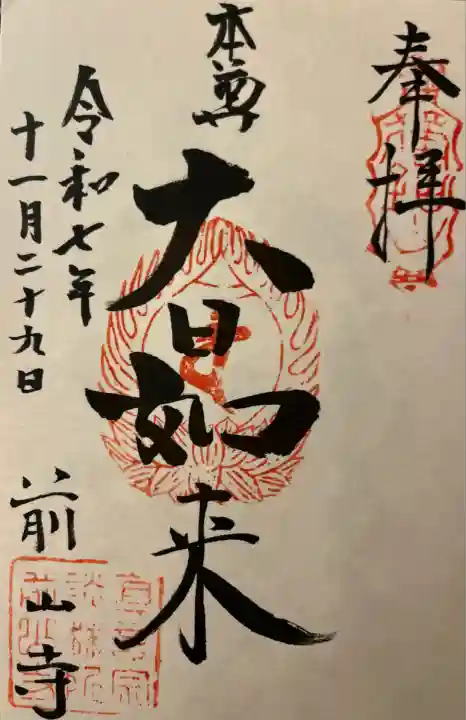 奉拝
本尊
大日如来
令和七年
十一月二十九日
前山寺